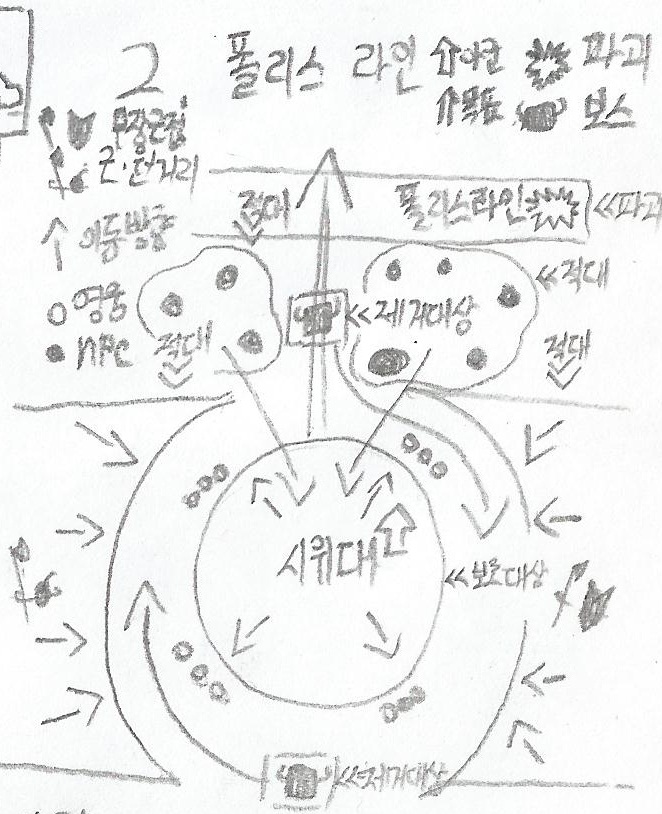 2 폴리스 라인 파괴
목표 보스
무장근접
근·단거리
적대 폴리스라인 <<파괴
이동방향
<<적대
영웅 <<제거대상
NPC 적대 적대
시위대
<<보호대상
<<제거대상